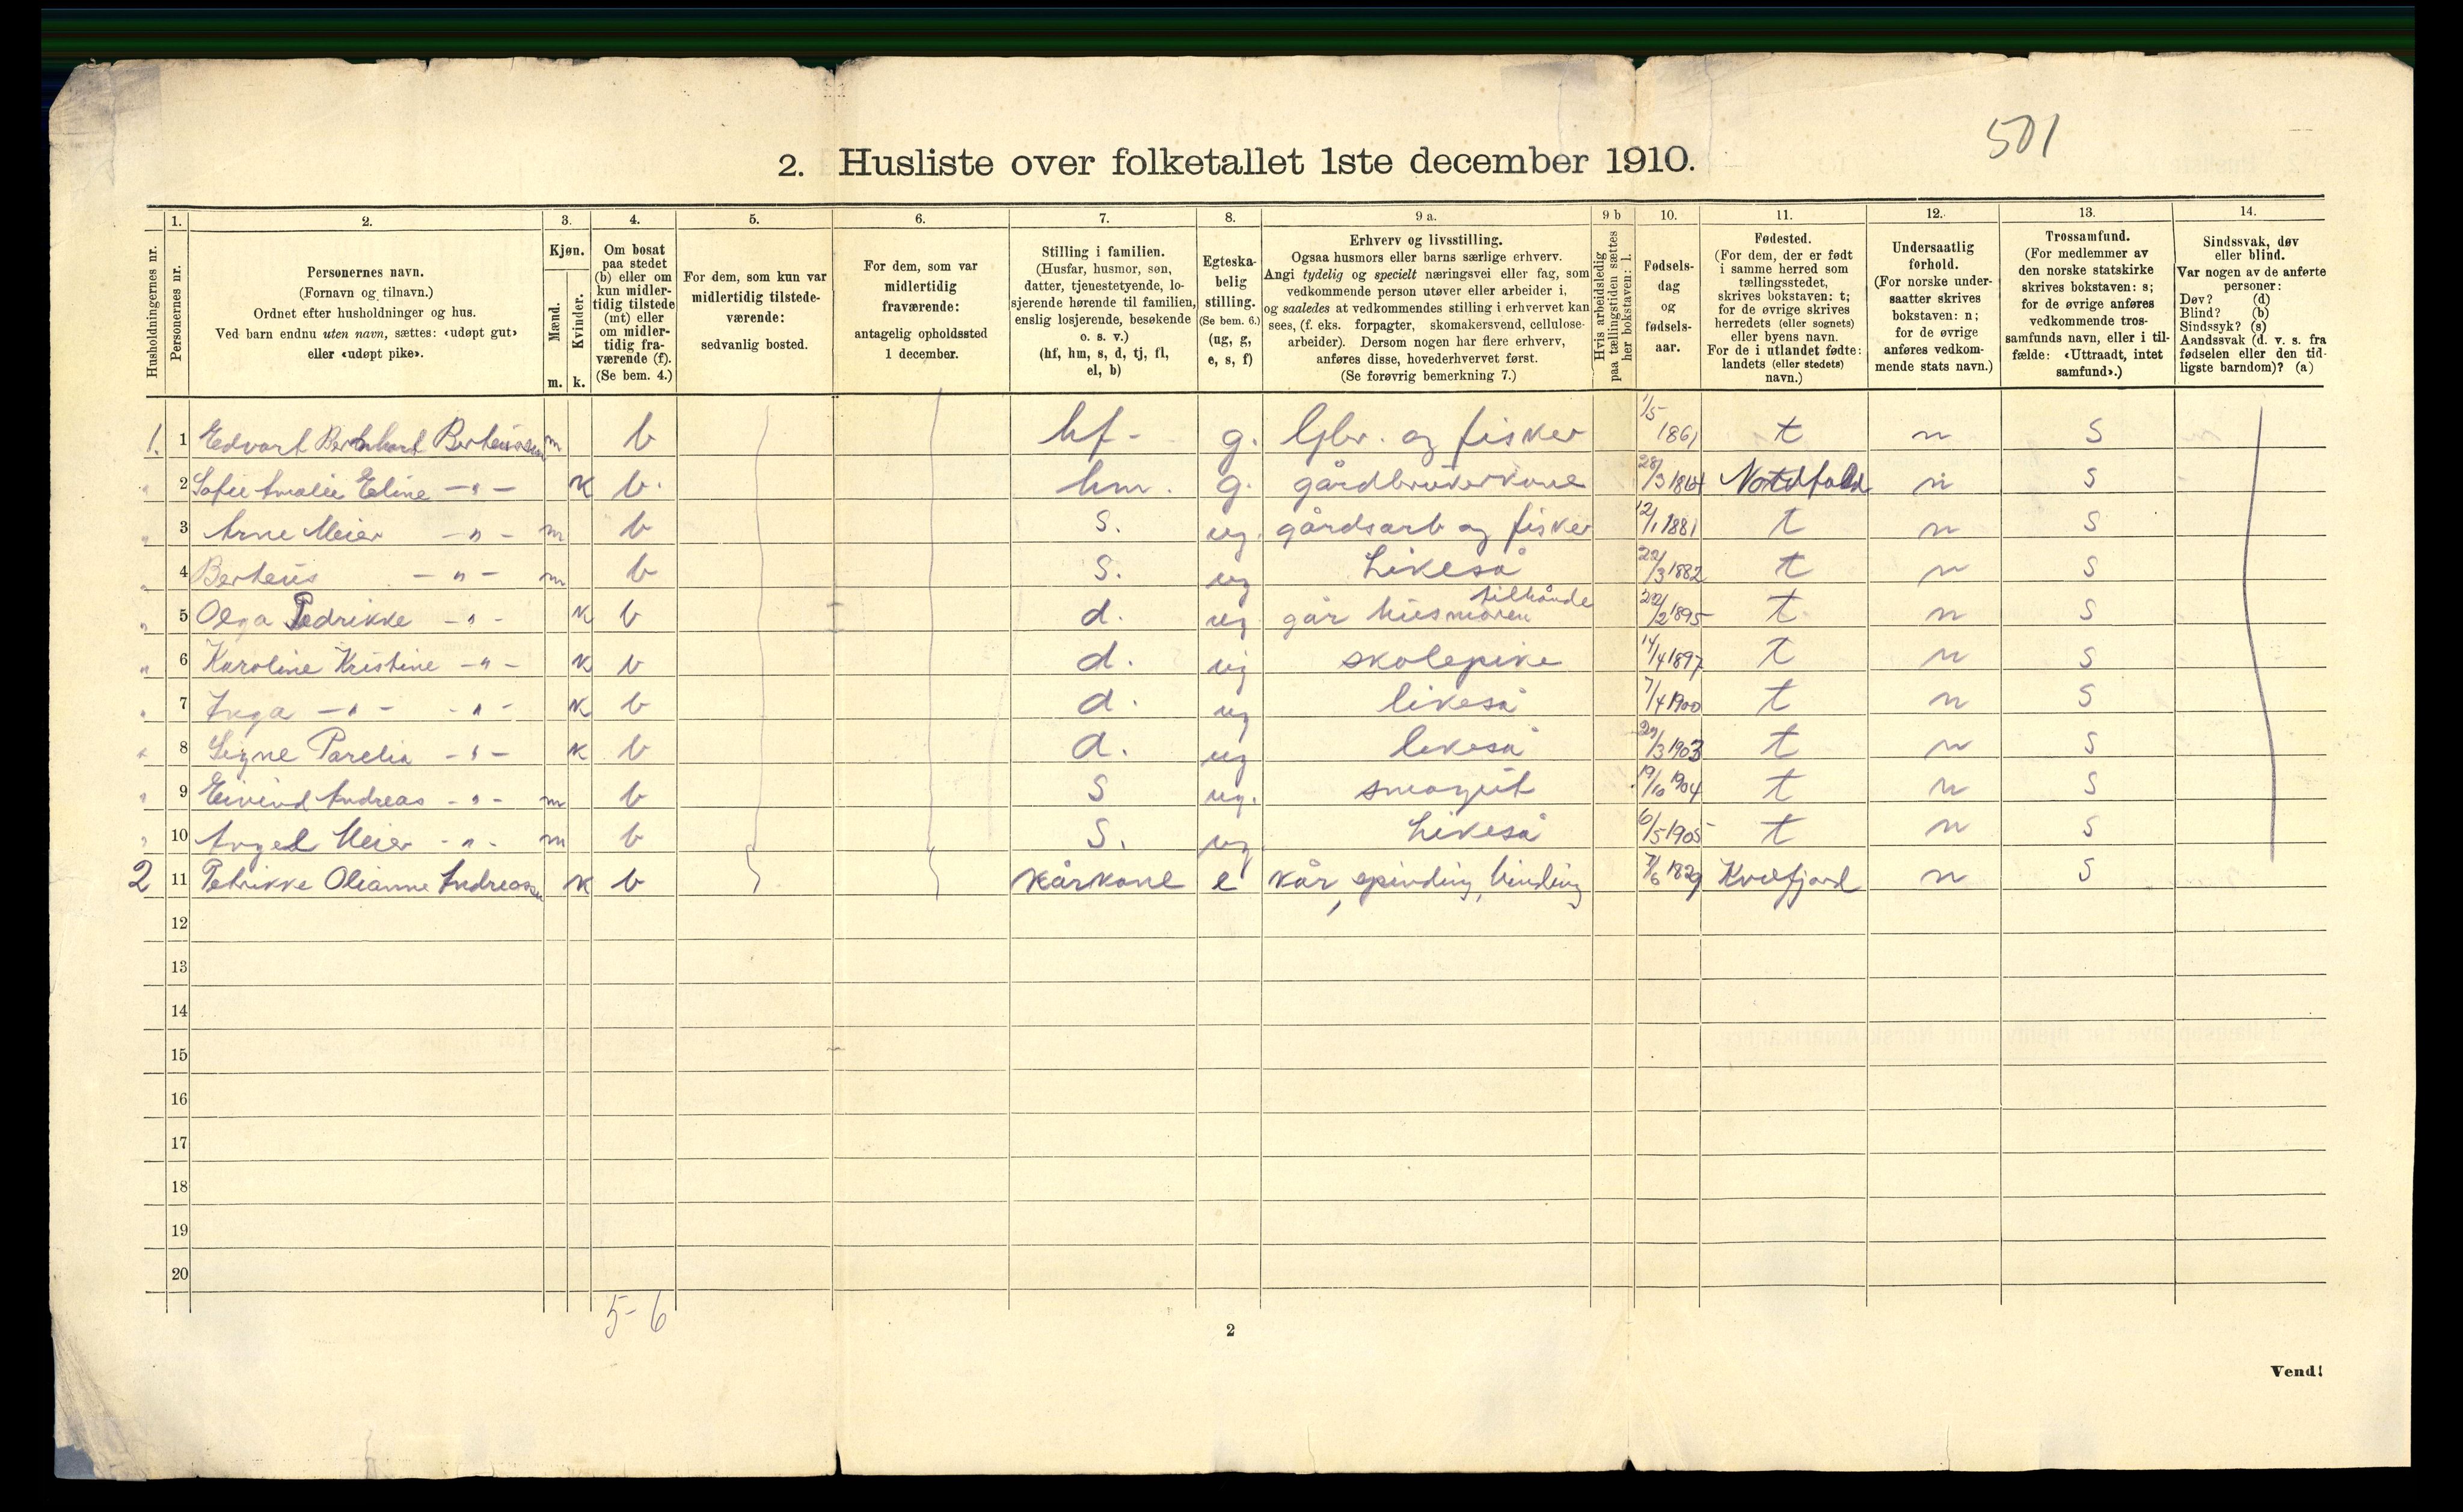 501
2. Husliste over folketallet 1ste december 1910.
1. 2. 3. 4. 5. 6. 7. 8. 9 a. 9 b 10. 11. 12. 13. 14.
Husholdningernes nr.
Personernes nr.
Personernes navn.
(Fornavn og tilnavn.)
Ordnet efter husholdninger og hus.
Ved barn endnu uten navn, sættes: «udøpt gut»
eller «udøpt pike».
Kjøn.
Mænd.
Kvinder.
m. k.
Om bosat
paa stedet
(b) eller om
kun midler-
tidig tilstede
(mt) eller
om midler-
tidig fra-
værende (f).
(Se bem. 4.)
For dem, som kun var
midlertidig tilstede-
værende:
sedvanlig bosted.
For dem, som var
midlertidig
fraværende:
antagelig opholdssted
1 december.
Stilling i familien.
(Husfar, husmor, søn,
datter, tjenestetyende, lo-
sjerende hørende til familien,
enslig losjerende, besøkende
o. s. v.)
(hf, hm, s, d, tj, fl,
el, b)
Egteska-
belig
stilling.
(Se bem. 6.)
(ug, g,
e, s, f)
Erhverv og livsstilling.
Ogsaa husmors eller barns særlige erhverv.
Angi tydelig og specielt næringsvei eller fag, som
vedkommende person utøver eller arbeider i,
og saaledes at vedkommendes stilling i erhvervet kan
sees, (f. eks. forpagter, skomakersvend, cellulose-
arbeider). Dersom nogen har flere erhverv,
anføres disse, hovederhvervet først.
(Se forøvrig bemerkning 7.)
Hvis arbeidsledig
paa tællingstiden sættes
her bokstaven: l.
Fødsels-
dag
og
fødsels-
aar.
Fødested.
(For dem, der er født
i samme herred som
tællingsstedet,
skrives bokstaven: t;
for de øvrige skrives
herredets (eller sognets)
eller byens navn.
For de i utlandet fødte:
landets (eller stedets)
navn.)
Undersaatlig
forhold.
(For norske under-
saatter skrives
bokstaven: n;
for de øvrige
anføres vedkom-
mende stats navn.)
Trossamfund.
(For medlemmer av
den norske statskirke
skrives bokstaven: s;
for de øvrige anføres
vedkommende tros-
samfunds navn, eller i til-
fælde: «Uttraadt, intet
samfund».)
Sindssvak, døv
eller blind.
Var nogen av de anførte
personer:
Døv? (d)
Blind? (b)
Sindssyk? (s)
Aandssvak (d. v. s. fra
fødselen eller den tid-
ligste barndom)? (a)
1. 1 Edvart Bernhart Berteussen m b hf - g. Gbr. og fisker 1/5 1861 t n s
" 2 Sofie Amalie Eline -"- k b. hm. g. gårdbrukerkone 28/3 1864 Nordfold n s
" 3 Arne Meier -"- m b s. ug. gårdsarb og fisker 12/1 1881 t n s
" 4 Berteus -"- m b s. ug Likeså 22/3 1882 t n s
" 5 Olga Pedrikke -"- k b d. ug går husmoren tilhånde 22/2 1895 t n s
" 6 Karoline Kristine -"- k b d. ug skolepike 14/4 1897 t n s
" 7 Inga -"- -"- k b d. ug likeså 7/4 1900 t n s
" 8 Signe Parelia -"- k b d. ug likeså 29/3 1903 t n s
" 9 Eivind Andreas -"- m b s ug. smågut 19/10 1904 t n s
" 10 Angel Meier -"- m b s. ug Likeså 6/5 1905 t n s
2 11 Petrikke Olianne Andreassen k b kårkone e kår, spinding, binding 7/6 1829 Kvæfjord n s
12
13
14
15
16
17
18
19
20
5-6
2
Vend!